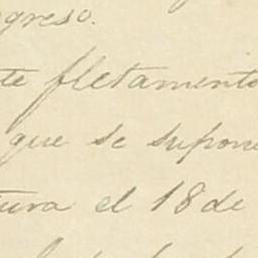 greso.
te fletamento
que se supone
tura el 18 de